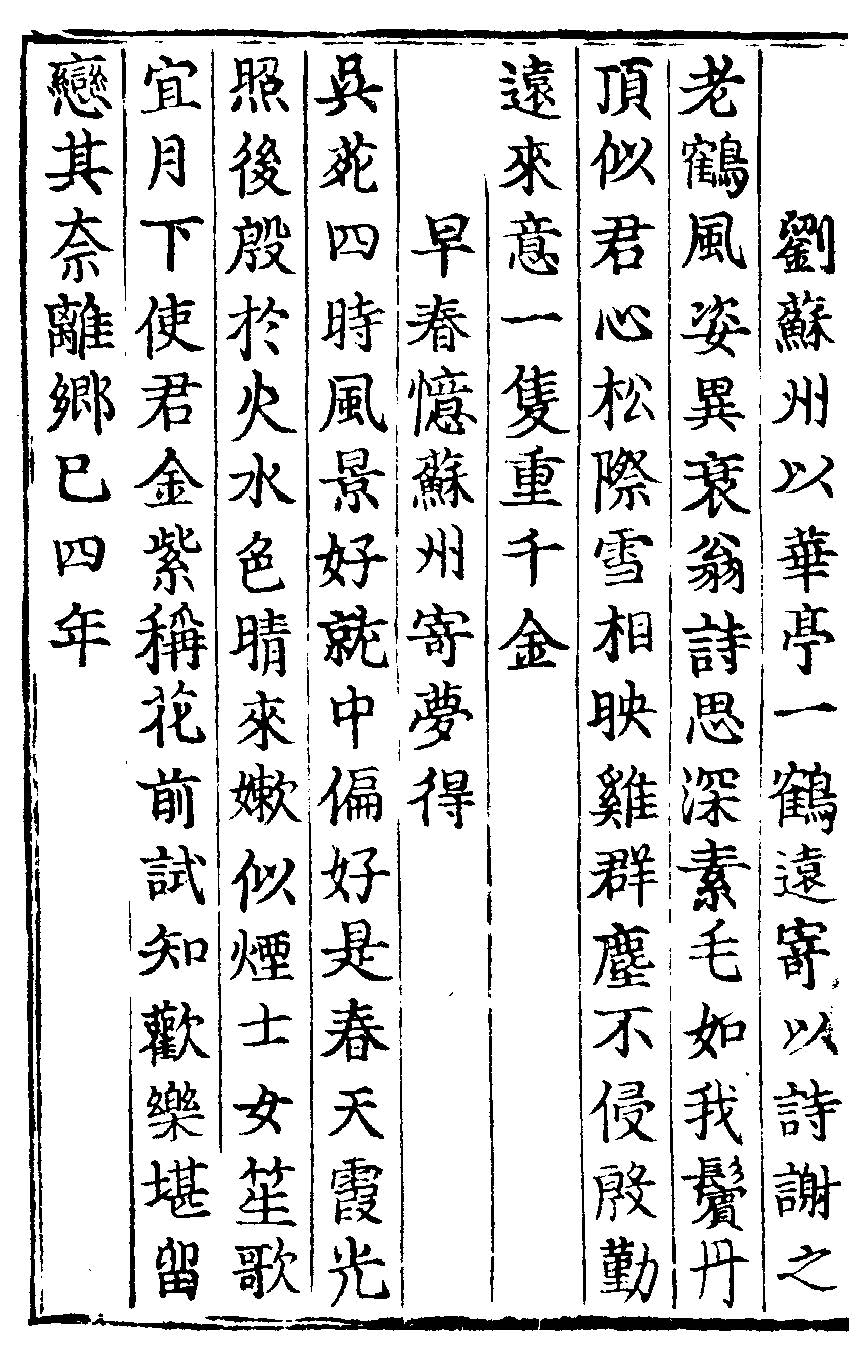 劉蘇州以華亭一鶴遠寄以詩謝之
老鶴風姿異衰翁詩思深素毛如我鬢丹
頂似君心松際雪相映雞群塵不侵殷勤
遠來意一隻重千金
早春憶蘇州寄夢得
吳苑四時風景好就中偏好是春天霞光
照後殷於火水色晴來嫩似煙士女笙歌
宜月下使君金紫稱花前試知歡樂堪留
戀其奈離鄉已四年